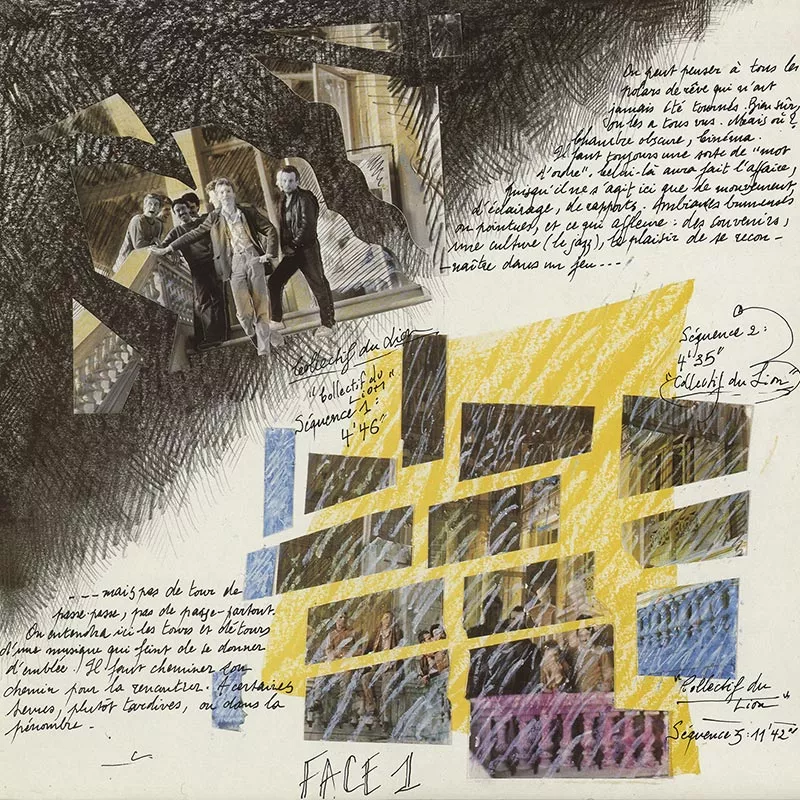 On peut penser à tous les
polars de rêve qui n'ont
jamais été tournés. Bien sûr,
on les a tous vus. Mais où ?
Chambre obscure, cinéma.
Il faut toujours une sorte de "mot
d'ordre", celui-là aura fait l'affaire,
puisqu'il ne s'agit ici que de mouvement,
d'éclairage, de rapports. Ambiantes
ou pointues, et ce qui affleure : des souvenirs,
une culture (le jazz), le plaisir de se recon-
-naître dans un jeu---
Collectif du Lion
"Collectif du
Lion"
Séquence 1:
4'46"
Séquence 2:
4'35"
"Collectif du Lion"
---mais pas de tour de
passe-passe, pas de passe-partout.
On entendra ici les tours et détours
d'une musique qui feint de se donner
d'emblée. Il faut cheminer son
chemin pour la rencontrer. A certaines
heures, plutôt tardives, ou dans la
pénombre.
"Collectif du
Lion"
Séquence 3: 11'42"
FACE 1